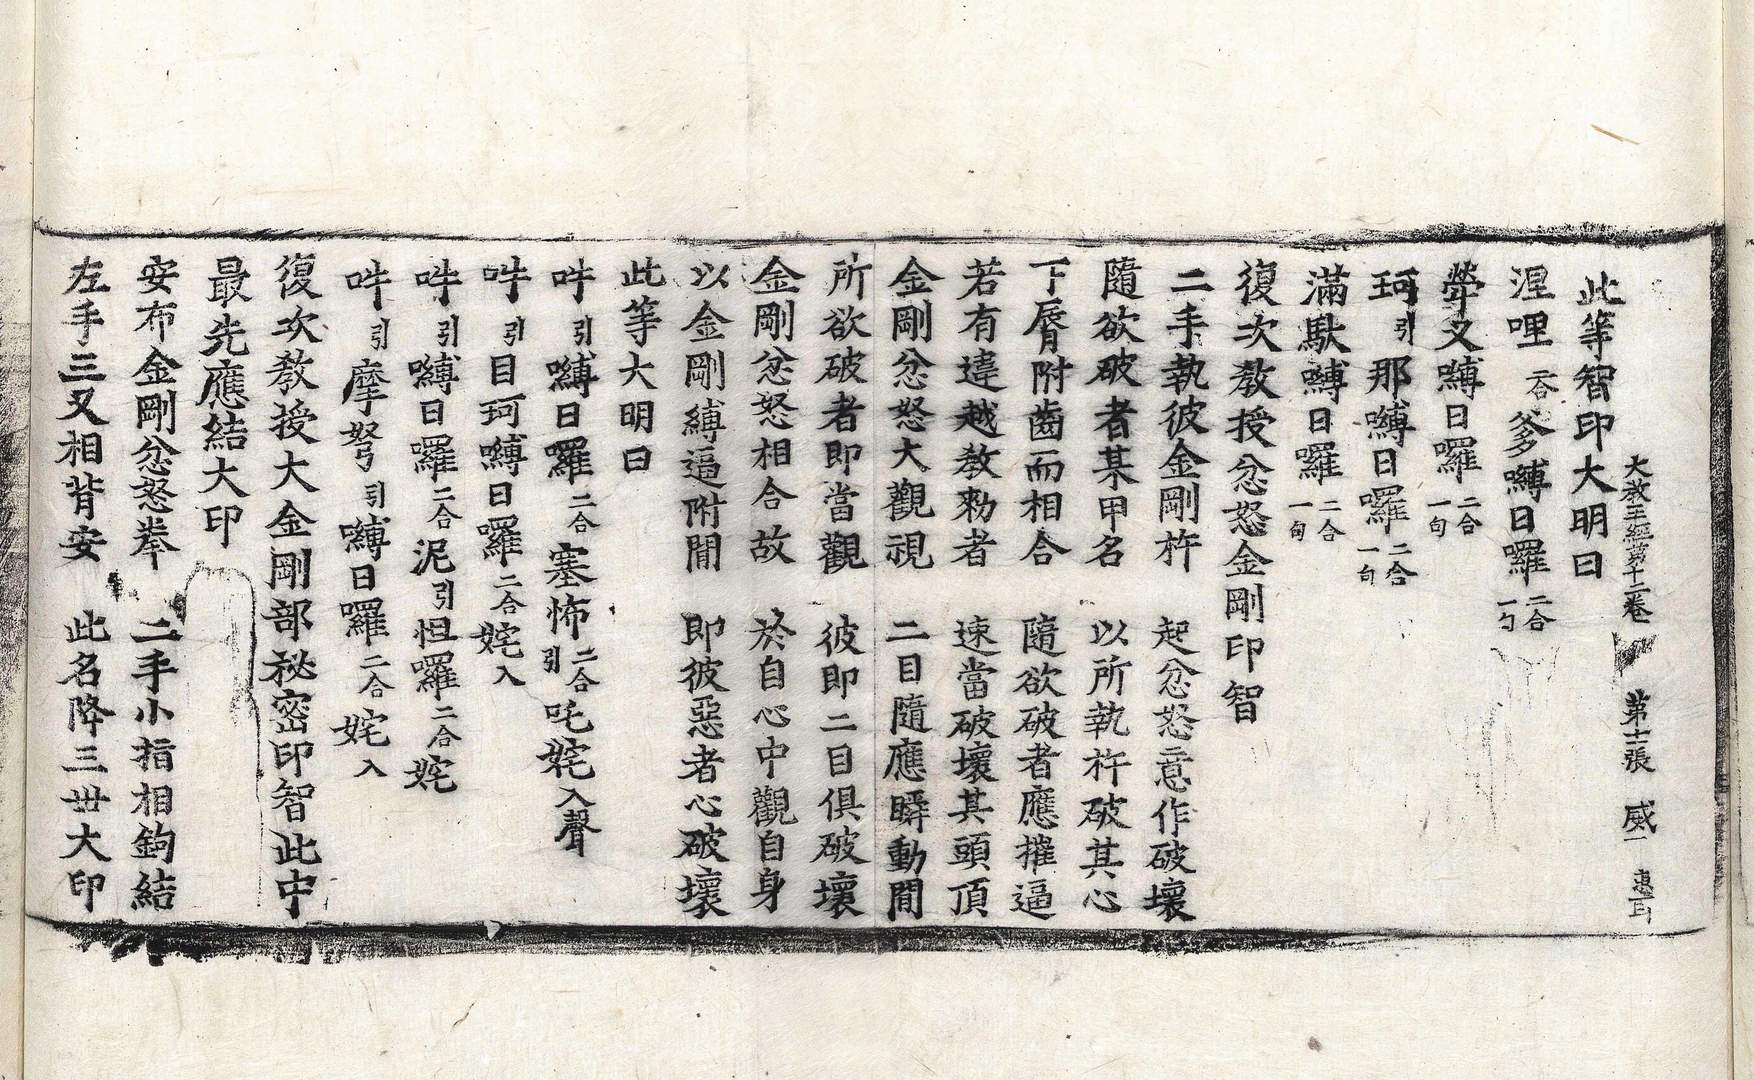 大教王經第十二卷 第十二張 威一
此等智印大明曰
涅哩二合爹嚩日囉二合一句
犖叉嚩日囉二合一句
珂引那嚩日囉二合一句
滿馱嚩日囉二合一句
復次教授忿怒金剛印智
二手執彼金剛杵 起忿怒意作破壞
隨欲破者某甲名 以所執杵破其心
下脣附齒而相合 隨欲破者應摧逼
若有違越教勑者 速當破壞其頭頂
金剛忿怒大觀視 二目隨應瞬動間
所欲破者即當觀 彼即二目俱破壞
金剛忿怒相合故 於自心中觀自身
以金剛縛逼附間 即彼惡者心破壞
此等大明曰
吽引嚩日囉二合塞怖二合引吒姹入聲
吽引目珂嚩日囉二合姹入
吽引嚩日囉二合泥引怛囉二合姹
吽引摩弩引嚩日囉二合姹入
復次教授大金剛部祕密印智此中
最先應結大印
安布金剛忿怒拳 二手小指相鉤結
左手三叉相背安 此名降三世大印